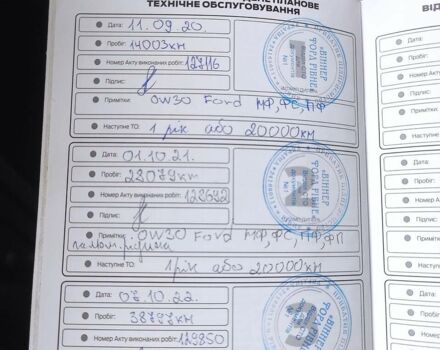 ПЛАНОВЕ
ТЕХНІЧНЕ ОБСЛУГОВУВАННЯ
Дата: 11.09.20.
Пробіг: 14003км
Номер Акту виконаних робіт: 127116
Підпис:
Примітки: 0W30 Ford МФ, ФС, ПФ
Наступне ТО: 1 рік або 20000км
Дата: 01.10.21.
Пробіг: 22079км
Номер Акту виконаних робіт: 128692
Підпис:
Примітки: 0W30 Ford МФ, ФС, ПФ, ФП
Наступне ТО: 1 рік або 20000км
Дата: 07.10.22.
Пробіг: 38797км
Номер Акту виконаних робіт: 129850
ВІД
«ВІННЕР
ТОРА РІВНЕ